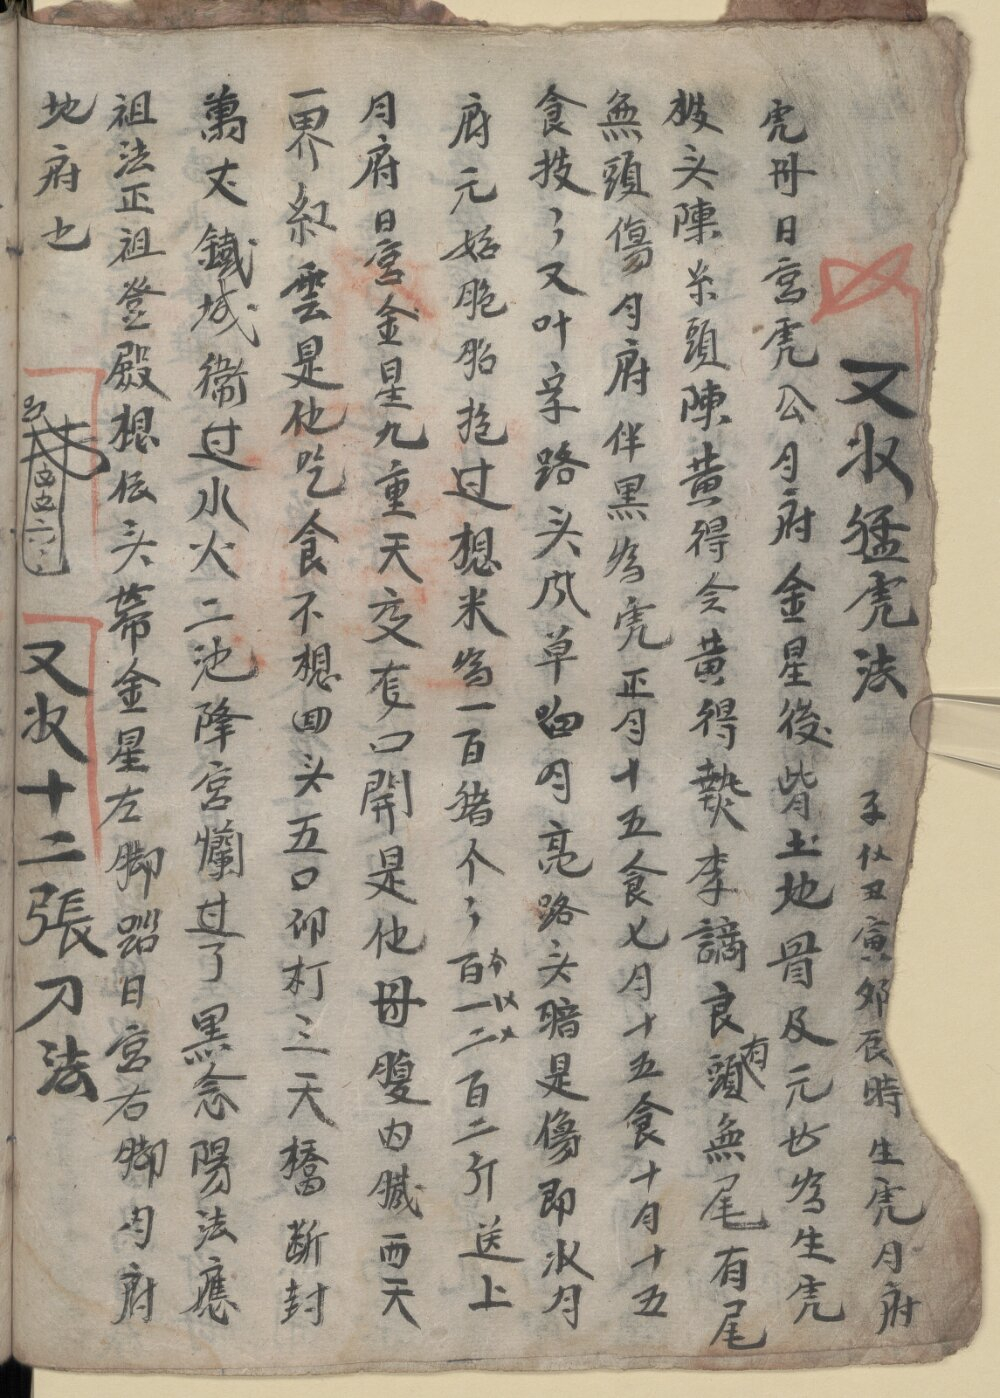 又收猛虎法 子丑寅卯辰時生虎月府
虎母日宮虎公月府金星後皆土地骨及元世為生虎
发头陳糸頭陳黃得令黃得熱李謫良頭有無尾有尾
無頭傷月府伴黑為虎正月十五食七月十五食十月十五
食技了又叶享路头风草月亮路头暗是傷即收月
府元始胞胎抱过想米為一百猪个了百一二百二斤送上
月府日宮金星九重天交有口開是他母腹内臓而天
一界紅雲是他吃食不想回头五口仰打三天橋断封
萬丈鐵城衛过水火二池降宮爛过了黑念陽法應
祖法正祖登殿想伝头帶金星左脚踏日宮右脚月府
地府也 又收十二張刀法